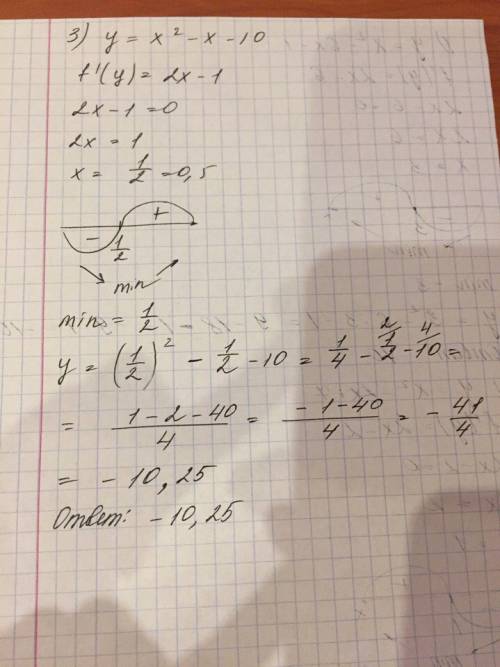 3) y = x² - x - 10
f'(y) = 2x - 1
2x - 1 = 0
2x = 1
x = 1/2 = 0,5
- + 1/2
min
min = 1/2
y = (1/2)² - 1/2 - 10 = 1/4 - 2/ 1/2 - 4/ 10 =
= (1 - 2 - 40)/4 = (-1 - 40)/4 = - 41/4
= - 10,25
Ответ: - 10,25